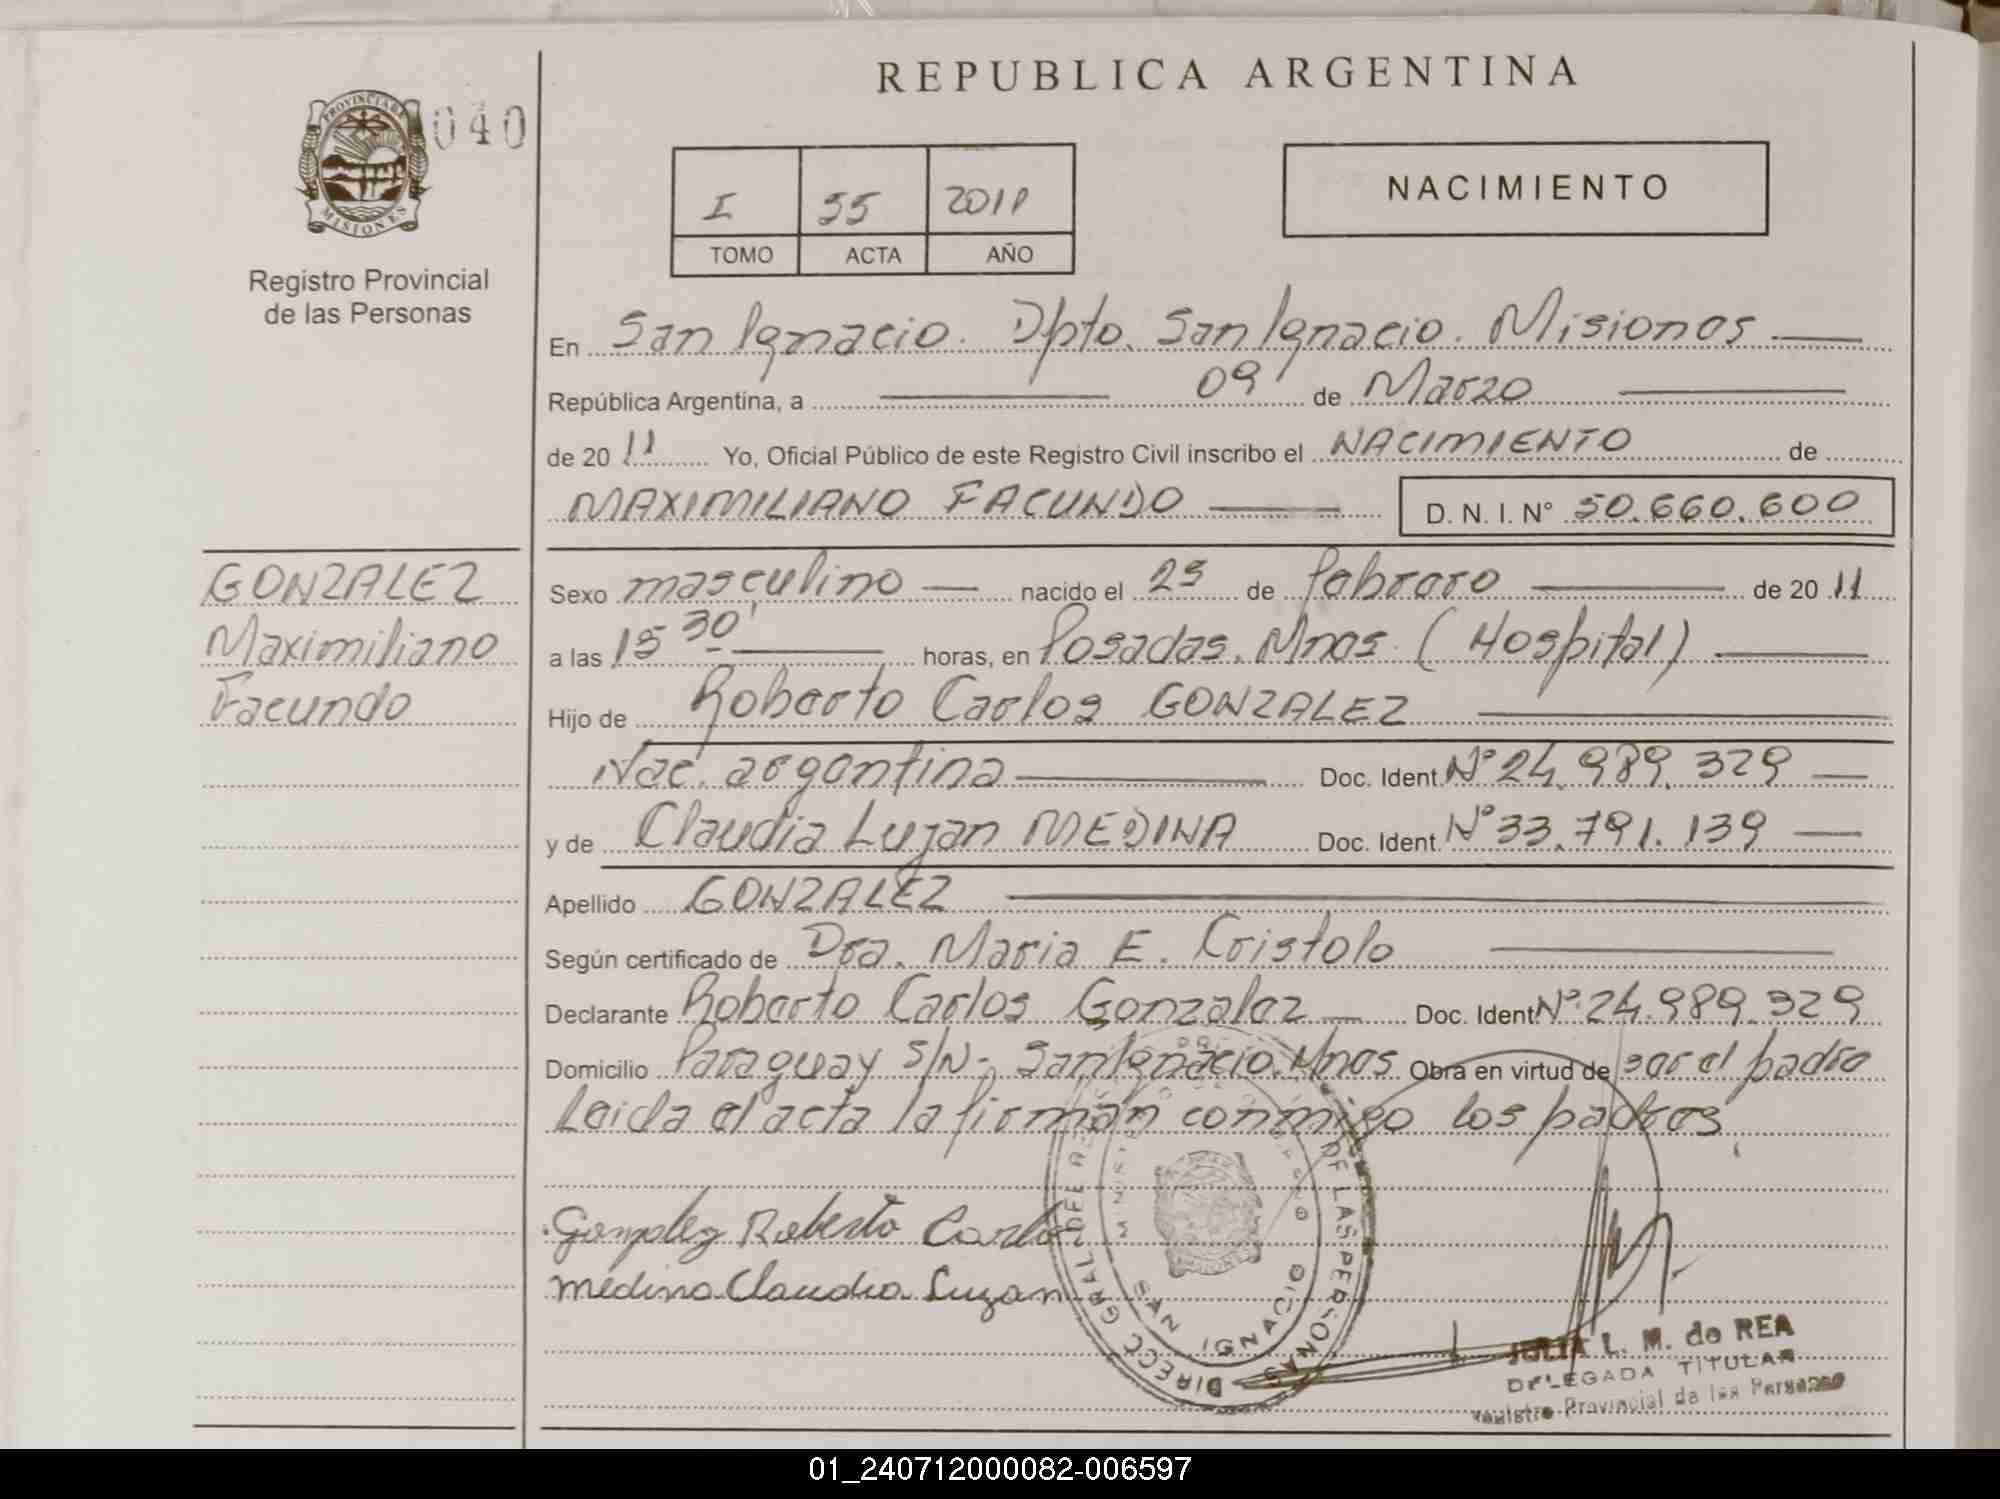 REPUBLICA ARGENTINA
PROVINCIA DE
MISIONES
040
Registro Provincial
de las Personas
I 55 2011
TOMO ACTA AÑO
NACIMIENTO
En San Ignacio. Dpto. San Ignacio. Misiones
República Argentina, a 09 de Marzo
de 20 11 Yo, Oficial Público de este Registro Civil inscribo el NACIMIENTO de
MAXIMILIANO FACUNDO D. N. I. N° 50.660.600
GONZALEZ
Maximiliano
Facundo
Sexo masculino nacido el 25 de febrero de 20 11
a las 15 30' horas, en Posadas. Mnes. (Hospital)
Hijo de Roberto Carlos GONZALEZ
Nac. argentina Doc. Ident N° 24.989.329
y de Claudia Lujan MEDINA Doc. Ident N° 33.791.139
Apellido GONZALEZ
Según certificado de Dra. Maria E. Cristolo
Declarante Roberto Carlos Gonzalez Doc. Ident N° 24.989.329
Domicilio Paraguay S/N- San Ignacio. Mnes Obra en virtud de ser el padre
Leida el acta la firman conmigo los padres.
Gonzalez Roberto Carlos
Medina Claudia Lujan
DIRECC. GRAL. DE REG. DE LAS PERSONAS
SAN IGNACIO
JULIA L. M. de REA
DELEGADA TITULAR
Registro Provincial de las Personas
01_240712000082-006597